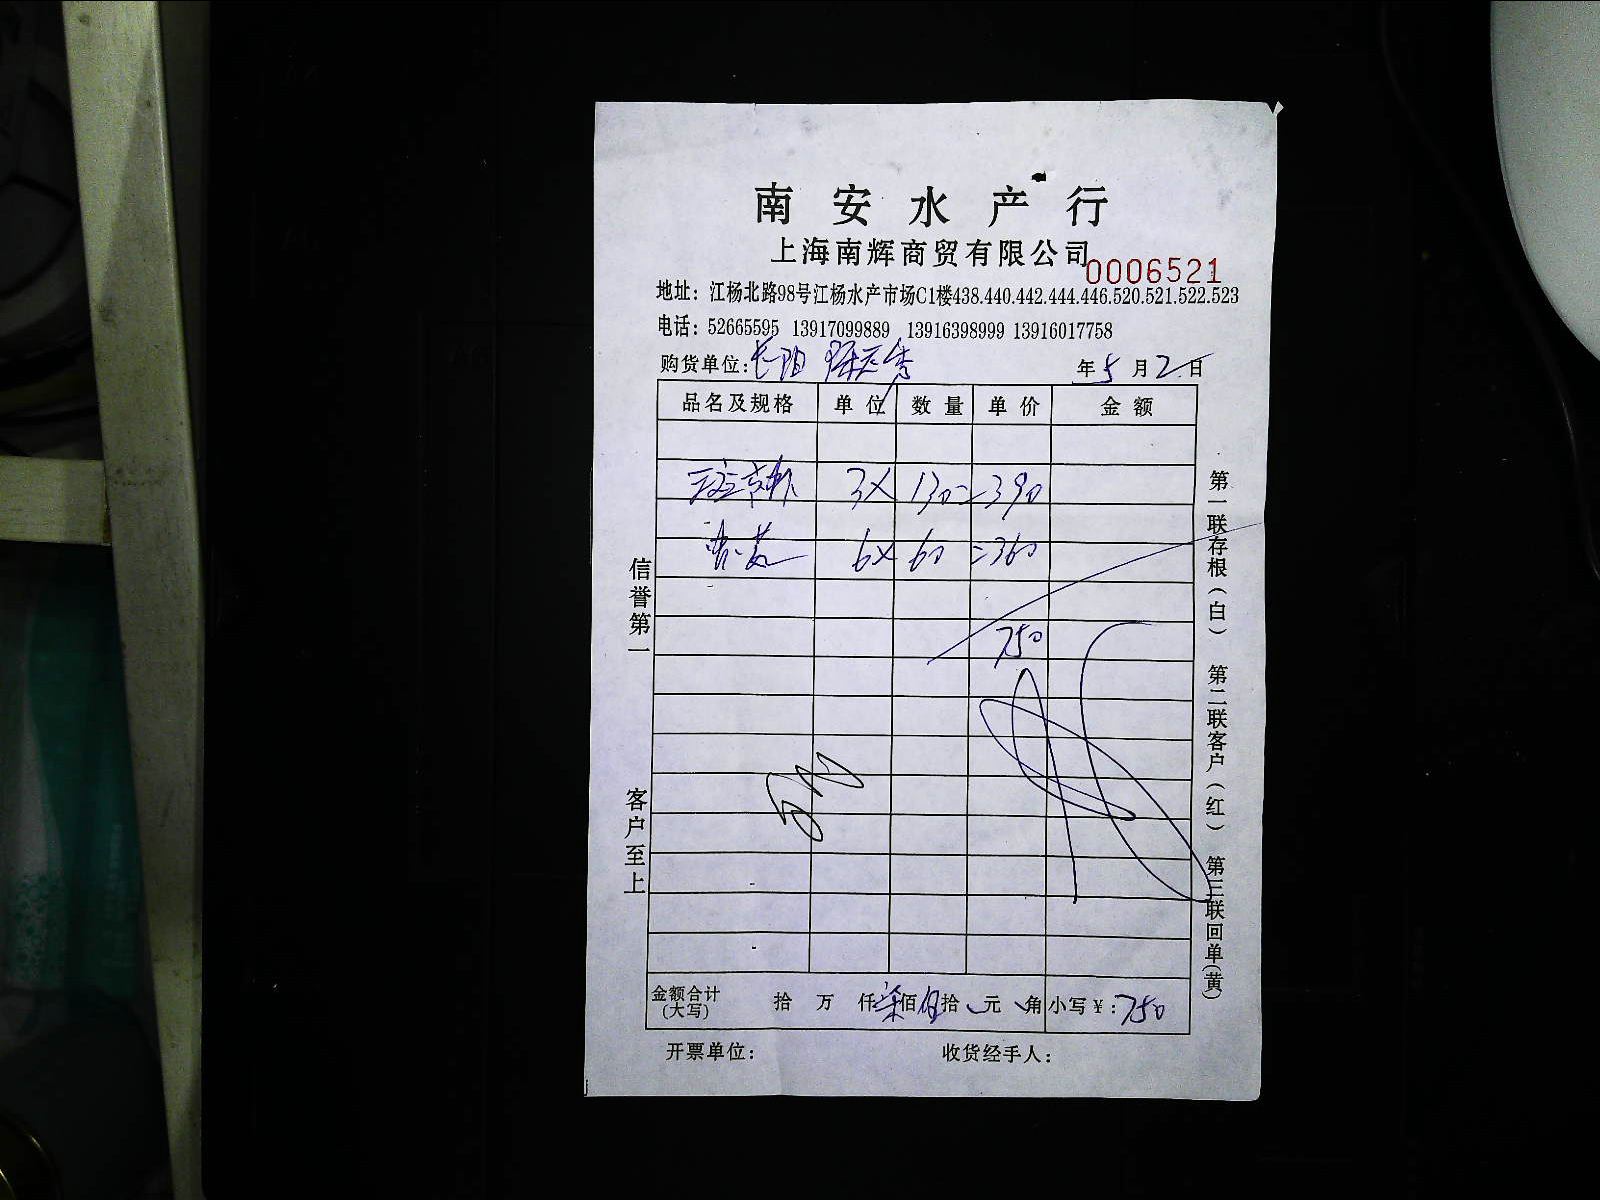 南安水产行
上海南辉商贸有限公司
0006521
地址：江杨北路98号江杨水产市场C1楼438.440.442.444.446.520.521.522.523
电话：52665595 13917099889 13916398999 13916017758
购货单位：长阳
年5月2日
品名及规格 单位 数量 单价 金额
3× 130=390
6× 60=360
750
金额合计(大写) 拾 万 仟柒佰伍拾 元 角 小写￥：750
开票单位： 收货经手人：
信誉第一 客户至上
第一联存根(白) 第二联客户(红) 第三联回单(黄)